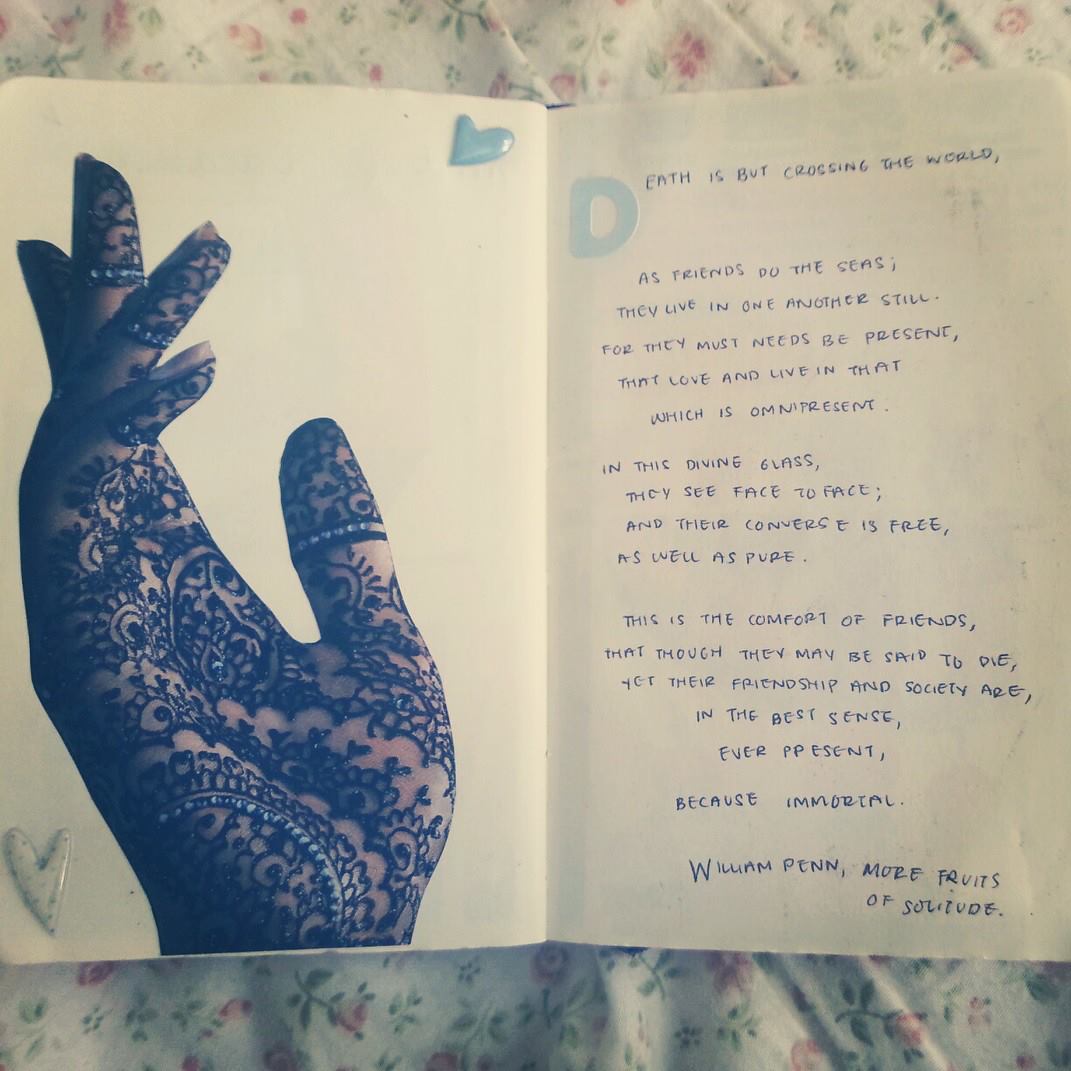 DEATH IS BUT CROSSING THE WORLD,
AS FRIENDS DO THE SEAS;
THEY LIVE IN ONE ANOTHER STILL.
FOR THEY MUST NEEDS BE PRESENT,
THAT LOVE AND LIVE IN THAT
WHICH IS OMNIPRESENT.
IN THIS DIVINE GLASS,
THEY SEE FACE TO FACE;
AND THEIR CONVERSE IS FREE,
AS WELL AS PURE.
THIS IS THE COMFORT OF FRIENDS,
THAT THOUGH THEY MAY BE SAID TO DIE,
YET THEIR FRIENDSHIP AND SOCIETY ARE,
IN THE BEST SENSE,
EVER PRESENT,
BECAUSE IMMORTAL.
WILLIAM PENN, MORE FRUITS
OF SOLITUDE.